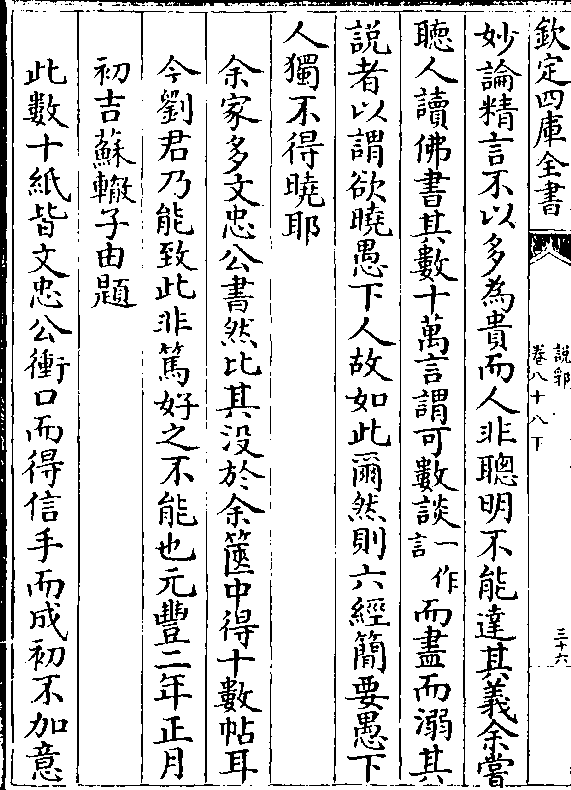 欽定四庫全書
說郛
卷八十八下
三十六
妙論精言不以多為貴而人非聰明不能達其義余嘗
聽人讀佛書其數十萬言謂可數談一作言而盡而溺其
説者以謂欲曉愚下人故如此爾然則六經簡要愚下
人獨不得曉耶
余家多文忠公書然比其没於余篋中得十數帖耳
今劉君乃能致此非篤好之不能也元豐二年正月
初吉蘇轍子由題
此數十紙皆文忠公衝口而得信手而成初不加意